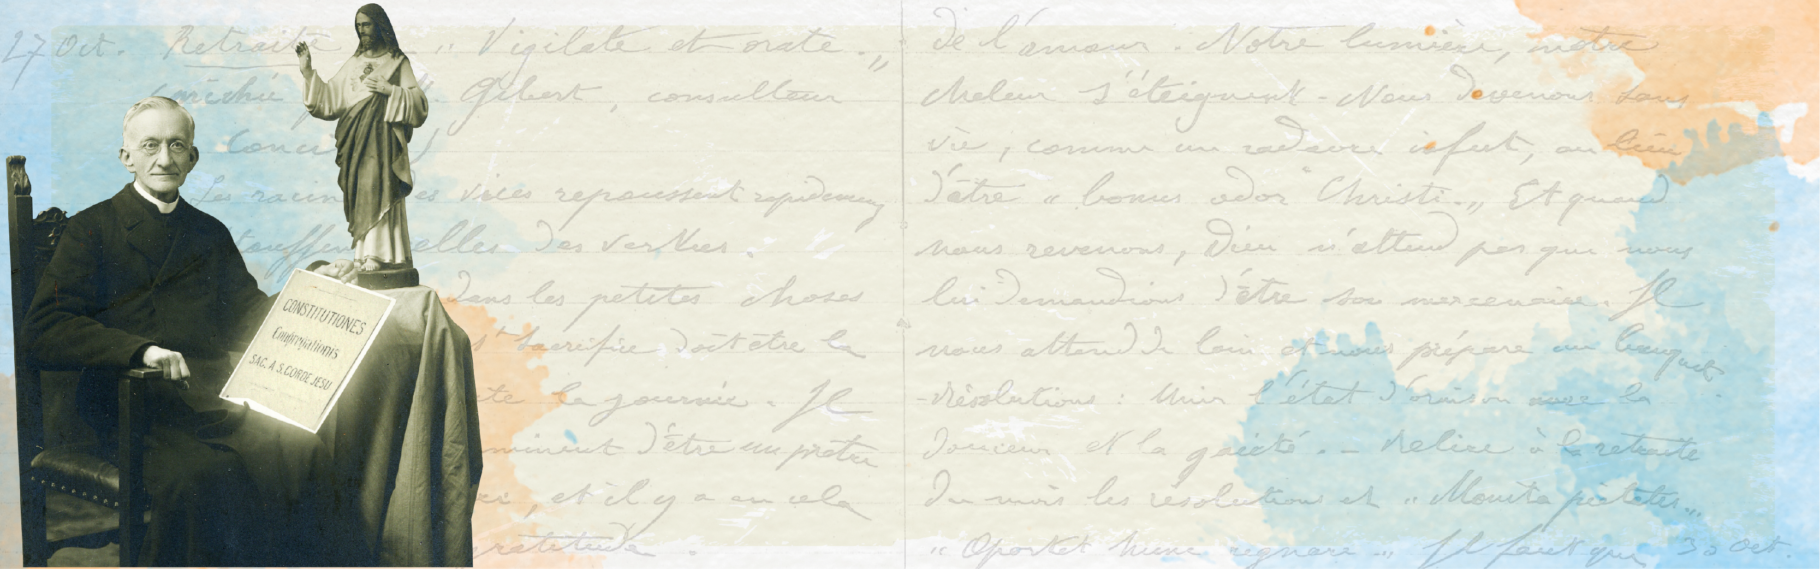 27 Oct. Retraite " Vigilate et orate. "
prêchée Gibert, consulteur
Les racin des vices repoussent rapidement
touffen elles des vertus.
dans les petites choses
sacrifice doit être la
te la journée. Il
minent d'être un prêtre
, et il y a en cela
gratitude.
de l'amour. Notre lumière, notre
chaleur s'éteignent - Nous devenons sans
vie, comme un cadavre infect, au lieu
d'être " bonus odor Christi. " Et quand
nous revenons, Dieu n'attend pas que nous
lui demandions d'être son mercenaire. Il
nous attend de loin et nous prépare un banquet
- Résolutions : Unir l'état d'oraison avec la
douceur et la gaieté. - Relire à la retraite
du mois les résolutions et " Monita pietatis "
" Oportet hunc regnare - " Il faut que 30 Oct.
CONSTITUTIONES
Congregationis
SAC. A S. CORDE JESU